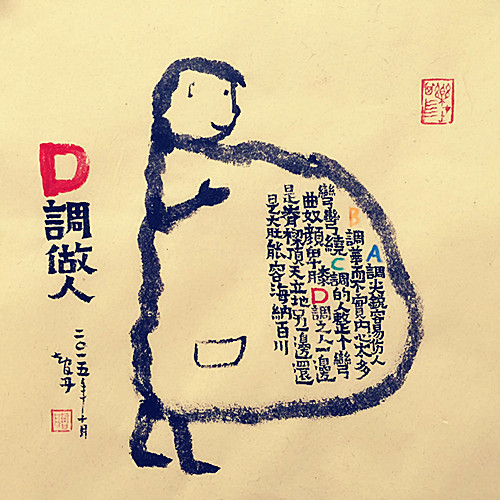 A調尖銳容易傷人
B調華而不實內心太多
彎彎繞C調的人整个彎
曲奴顏卑膝D調之人一邊
是脊樑頂天立地另一邊還
是大肚能容海納百川
D調做人